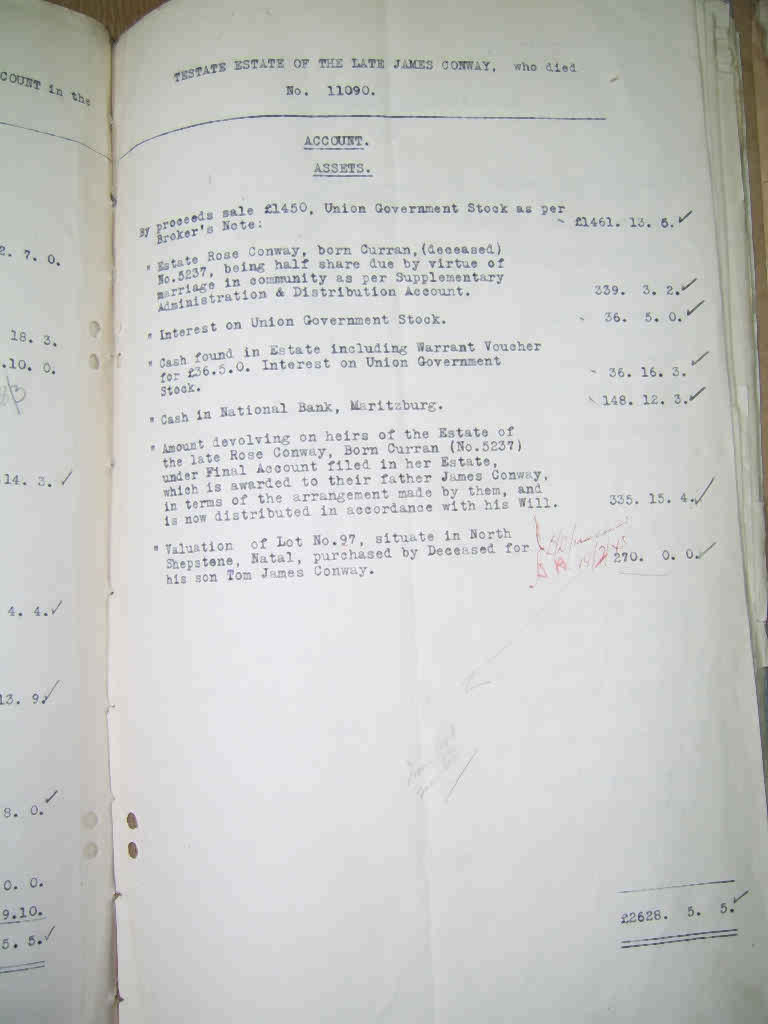 COUNT in the
2. 7. 0.
18. 3.
.10. 0.
14. 3.
4. 4.
13. 9.
8. 0.
0. 0.
9.10.
5. 5.
TESTATE ESTATE OF THE LATE JAMES CONWAY, who died
No. 11090.
ACCOUNT.
ASSETS.
By proceeds sale £1450, Union Government Stock as per
Broker's Note: £1461. 13. 5.
" Estate Rose Conway, born Curran,(deceased)
No.5237, being half share due by virtue of
marriage in community as per Supplementary
Administration & Distribution Account. 339. 3. 2.
" Interest on Union Government Stock. 36. 5. 0.
" Cash found in Estate including Warrant Voucher
for £36.5.0. Interest on Union Government
Stock. 36. 16. 3.
" Cash in National Bank, Maritzburg. 148. 12. 3.
" Amount devolving on heirs of the Estate of
the late Rose Conway, Born Curran (No.5237)
under Final Account filed in her Estate,
which is awarded to their father James Conway,
in terms of the arrangement made by them, and
is now distributed in accordance with his Will. 335. 15. 4.
" Valuation of Lot No.97, situate in North
Shepstene, Natal, purchased by Deceased for
his son Tom James Conway. 270. 0. 0.
£2628. 5. 5.